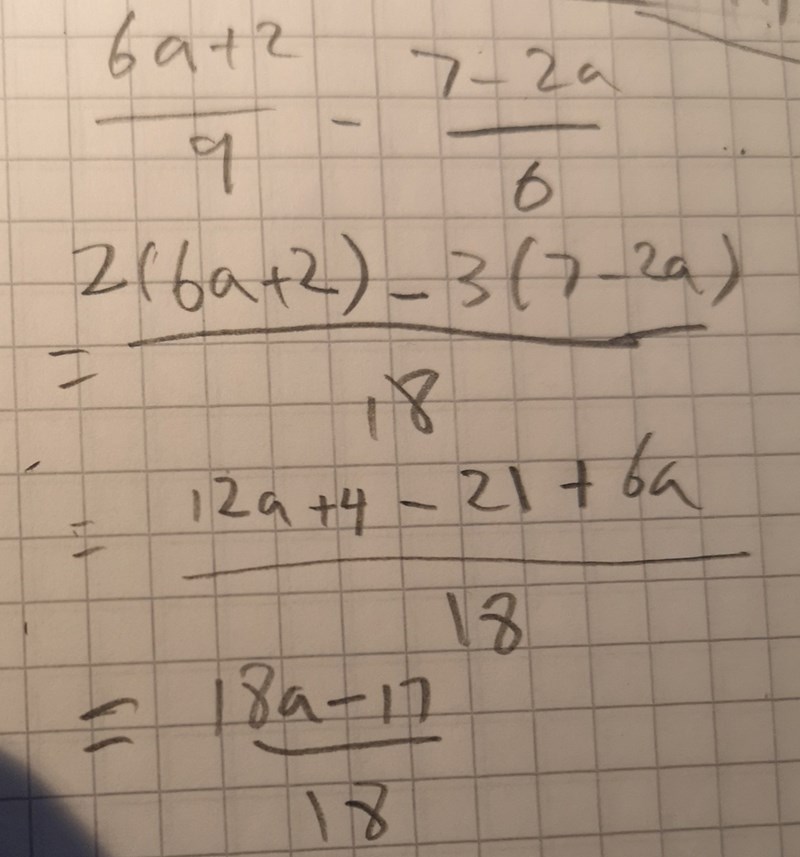 6a+2 / 9 - 7-2a / 6
= 2(6a+2) - 3(7-2a) / 18
= 12a+4-21+6a / 18
= 18a-17 / 18